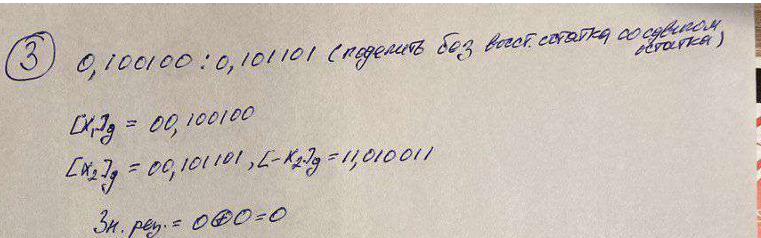 3 0,100100 : 0,101101 (поделить без восст. остатка со сдвигом остатка)
[X₁]g = 00,100100
[X₂]g = 00,101101, [-X₂]g = 11,010011
Зн. рез. = 0⊕0=0